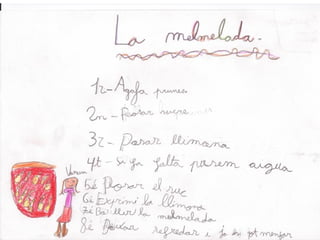 La melmelada.
1r - Agafa prunes
2n - Posar sucre....
3r - Posar llimona
4t - Si fa falta posem aigua
5é Posar el suc
6é Exprimi la llimona
7é Bullir la melmelada
8é Deixar refredar i ja es pot menjar